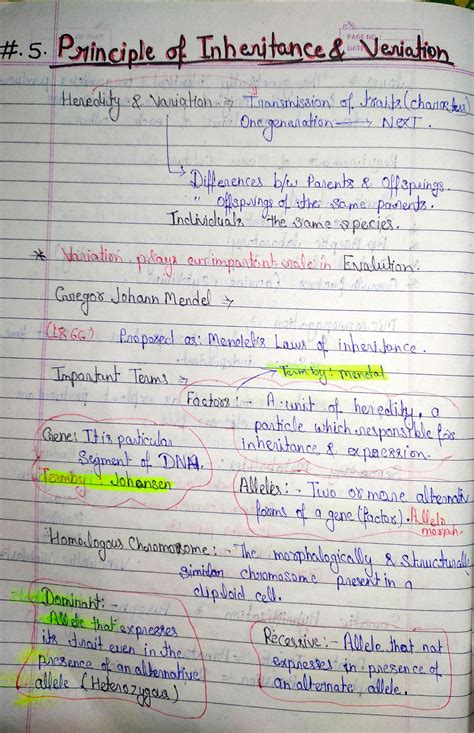 #. 5. Principle of Inheritance & Veriation
Heredity & Variation → Transmission of traits (characters)
One generation → Next.
→ Differences b/w Parents & Offsprings.
" Offsprings of the same parents.
Individuals the same species.
* Variation plays an important role in Evalution.
Gregor Johann Mendel →
(1866) Proposed as: Mendel's Laws of inheritance.
Important Terms → Term by: Mendal
Factors:- A unit of heredity, a
particle which responsible for
inheritance & expression.
Gene: It is particular
segment of DNA.
Term by: Johansen
Alleles:- Two or more alternate
forms of a gene (factor). Allelo
morph.
Homologous Chromosome:- The morphologically & Structurally
similar chromosome present in a
diploid cell.
Dominant:-
Allele that expresses
its trait even in the
presence of an alternative
allele (Heterozygous)
Recessive:- Allele that not
expresses in presence of
an alternate allele.